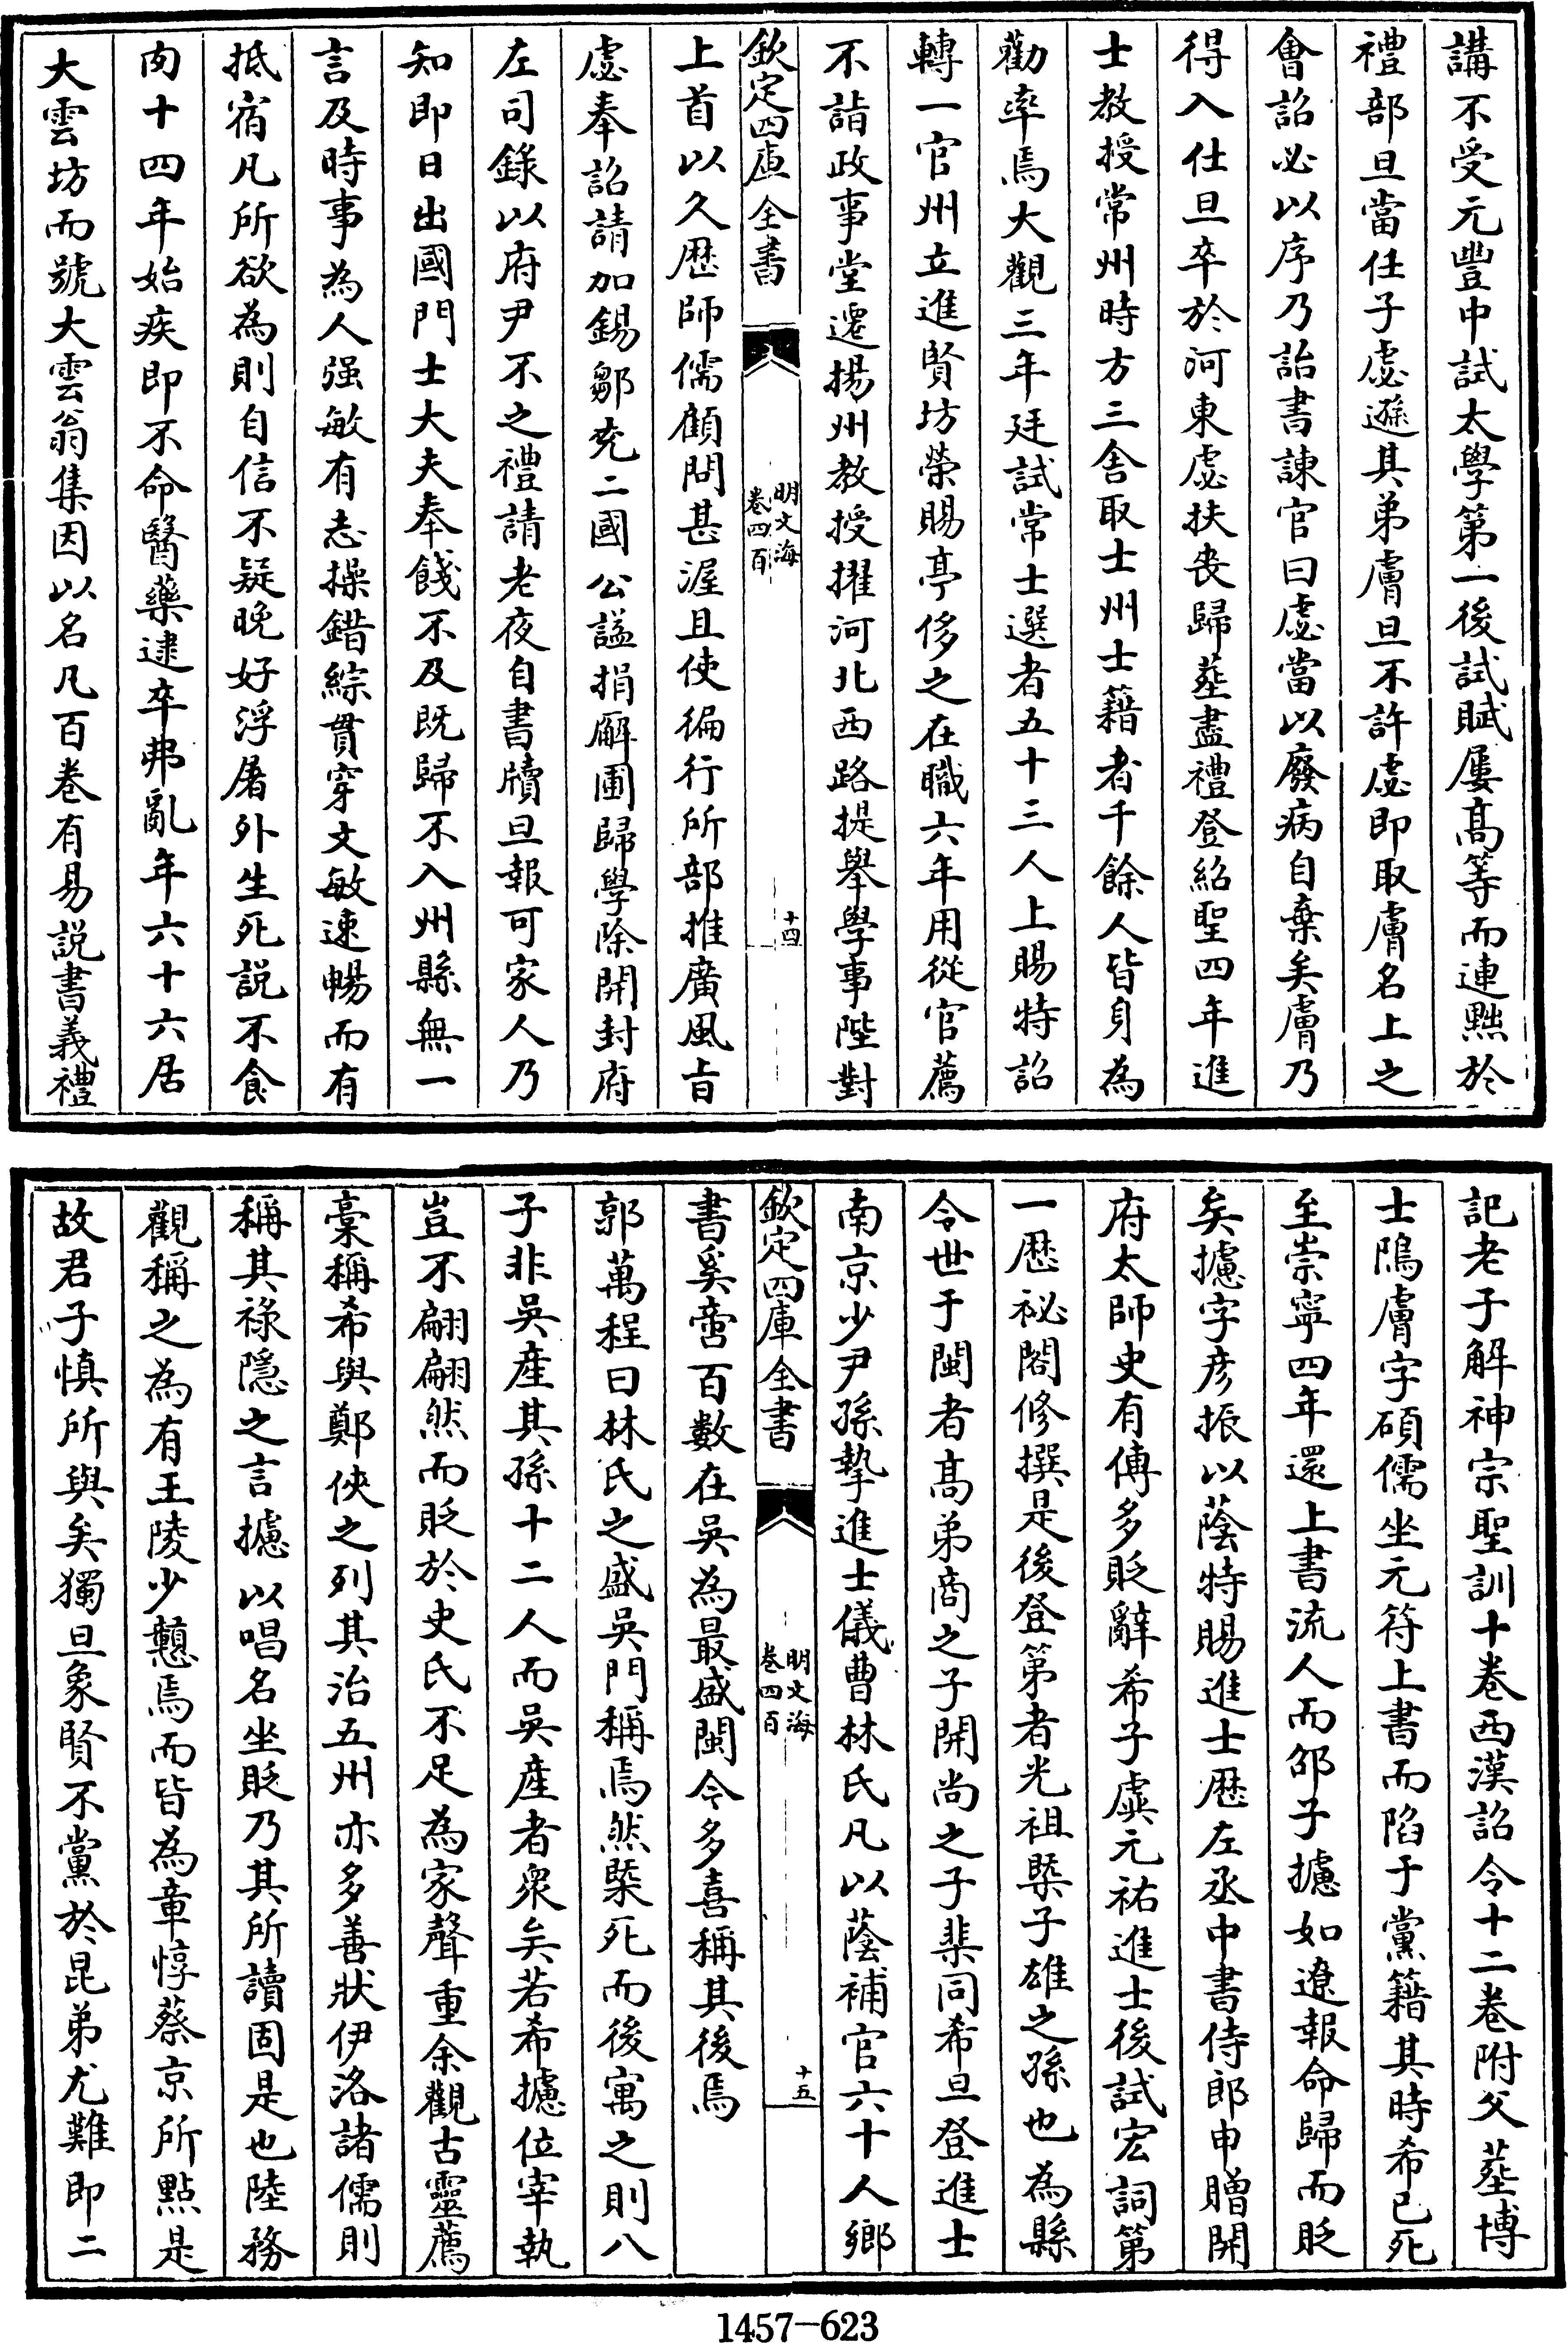 講不受元豐中試太學第一後試賦屢髙等而連黜於
禮部旦當任子虙遜其弟膚旦不許虙即取膚名上之
會詔必以序乃詒書諫官曰虙當以廢病自棄矣膚乃
得入仕旦卒於河東虙扶喪歸塟盡禮登紹聖四年進
士教授常州時方三舍取士州士籍者千餘人皆身為
勸率焉大觀三年廷試常士選者五十三人上賜特詔
轉一官州立進賢坊榮賜亭侈之在職六年用從官薦
不詣政事堂遷揚州教授擢河北西路提舉學事陛對
欽定四庫全書
明文海
卷四百
十四
上首以久歴師儒顧問甚渥且使徧行所部推廣風旨
虙奉詔請加錫鄒兖二國公謚捐廨圃歸學除開封府
左司錄以府尹不之禮請老夜自書牘旦報可家人乃
知即日出國門士大夫奉餞不及既歸不入州縣無一
言及時事為人强敏有志操錯綜貫穿文敏速暢而有
抵宿凡所欲為則自信不疑晚好浮屠外生死説不食
肉十四年始疾即不命醫藥逮卒弗亂年六十六居
大雲坊而號大雲翁集因以名凡百巻有易説書義禮
記老子解神宗聖訓十巻西漢詔令十二巻附父塟博
士隖膚字碩儒坐元符上書而陷于黨籍其時希已死
至崇寧四年還上書流人而邵子攄如遼報命歸而貶
矣攄字彦振以蔭特賜進士歴左丞中書侍郎申贈開
府太師史有傳多貶辭希子虡元祐進士後試宏詞第
一歴祕閣修撰是後登第者光祖槩子雄之孫也為縣
令世于閩者髙弟商之子開尚之子棐同希旦登進士
南京少尹孫摯進士儀曹林氏凡以蔭補官六十人鄉
欽定四庫全書
明文海
卷四百
十五
書奚啻百數在吳為最盛閩今多喜稱其後焉
郭萬程曰林氏之盛吳門稱焉然槩死而後寓之則八
子非吳産其孫十二人而吳産者衆矣若希攄位宰執
豈不翩翩然而貶於史氏不足為家聲重余觀古靈薦
稾稱希與鄭俠之列其治五州亦多善狀伊洛諸儒則
稱其祿隱之言攄以唱名坐貶乃其所讀固是也陸務
觀稱之為有王陵少戅焉而皆為章惇蔡京所點是
故君子慎所與矣獨旦象賢不黨於昆弟尤難即二
1457—623